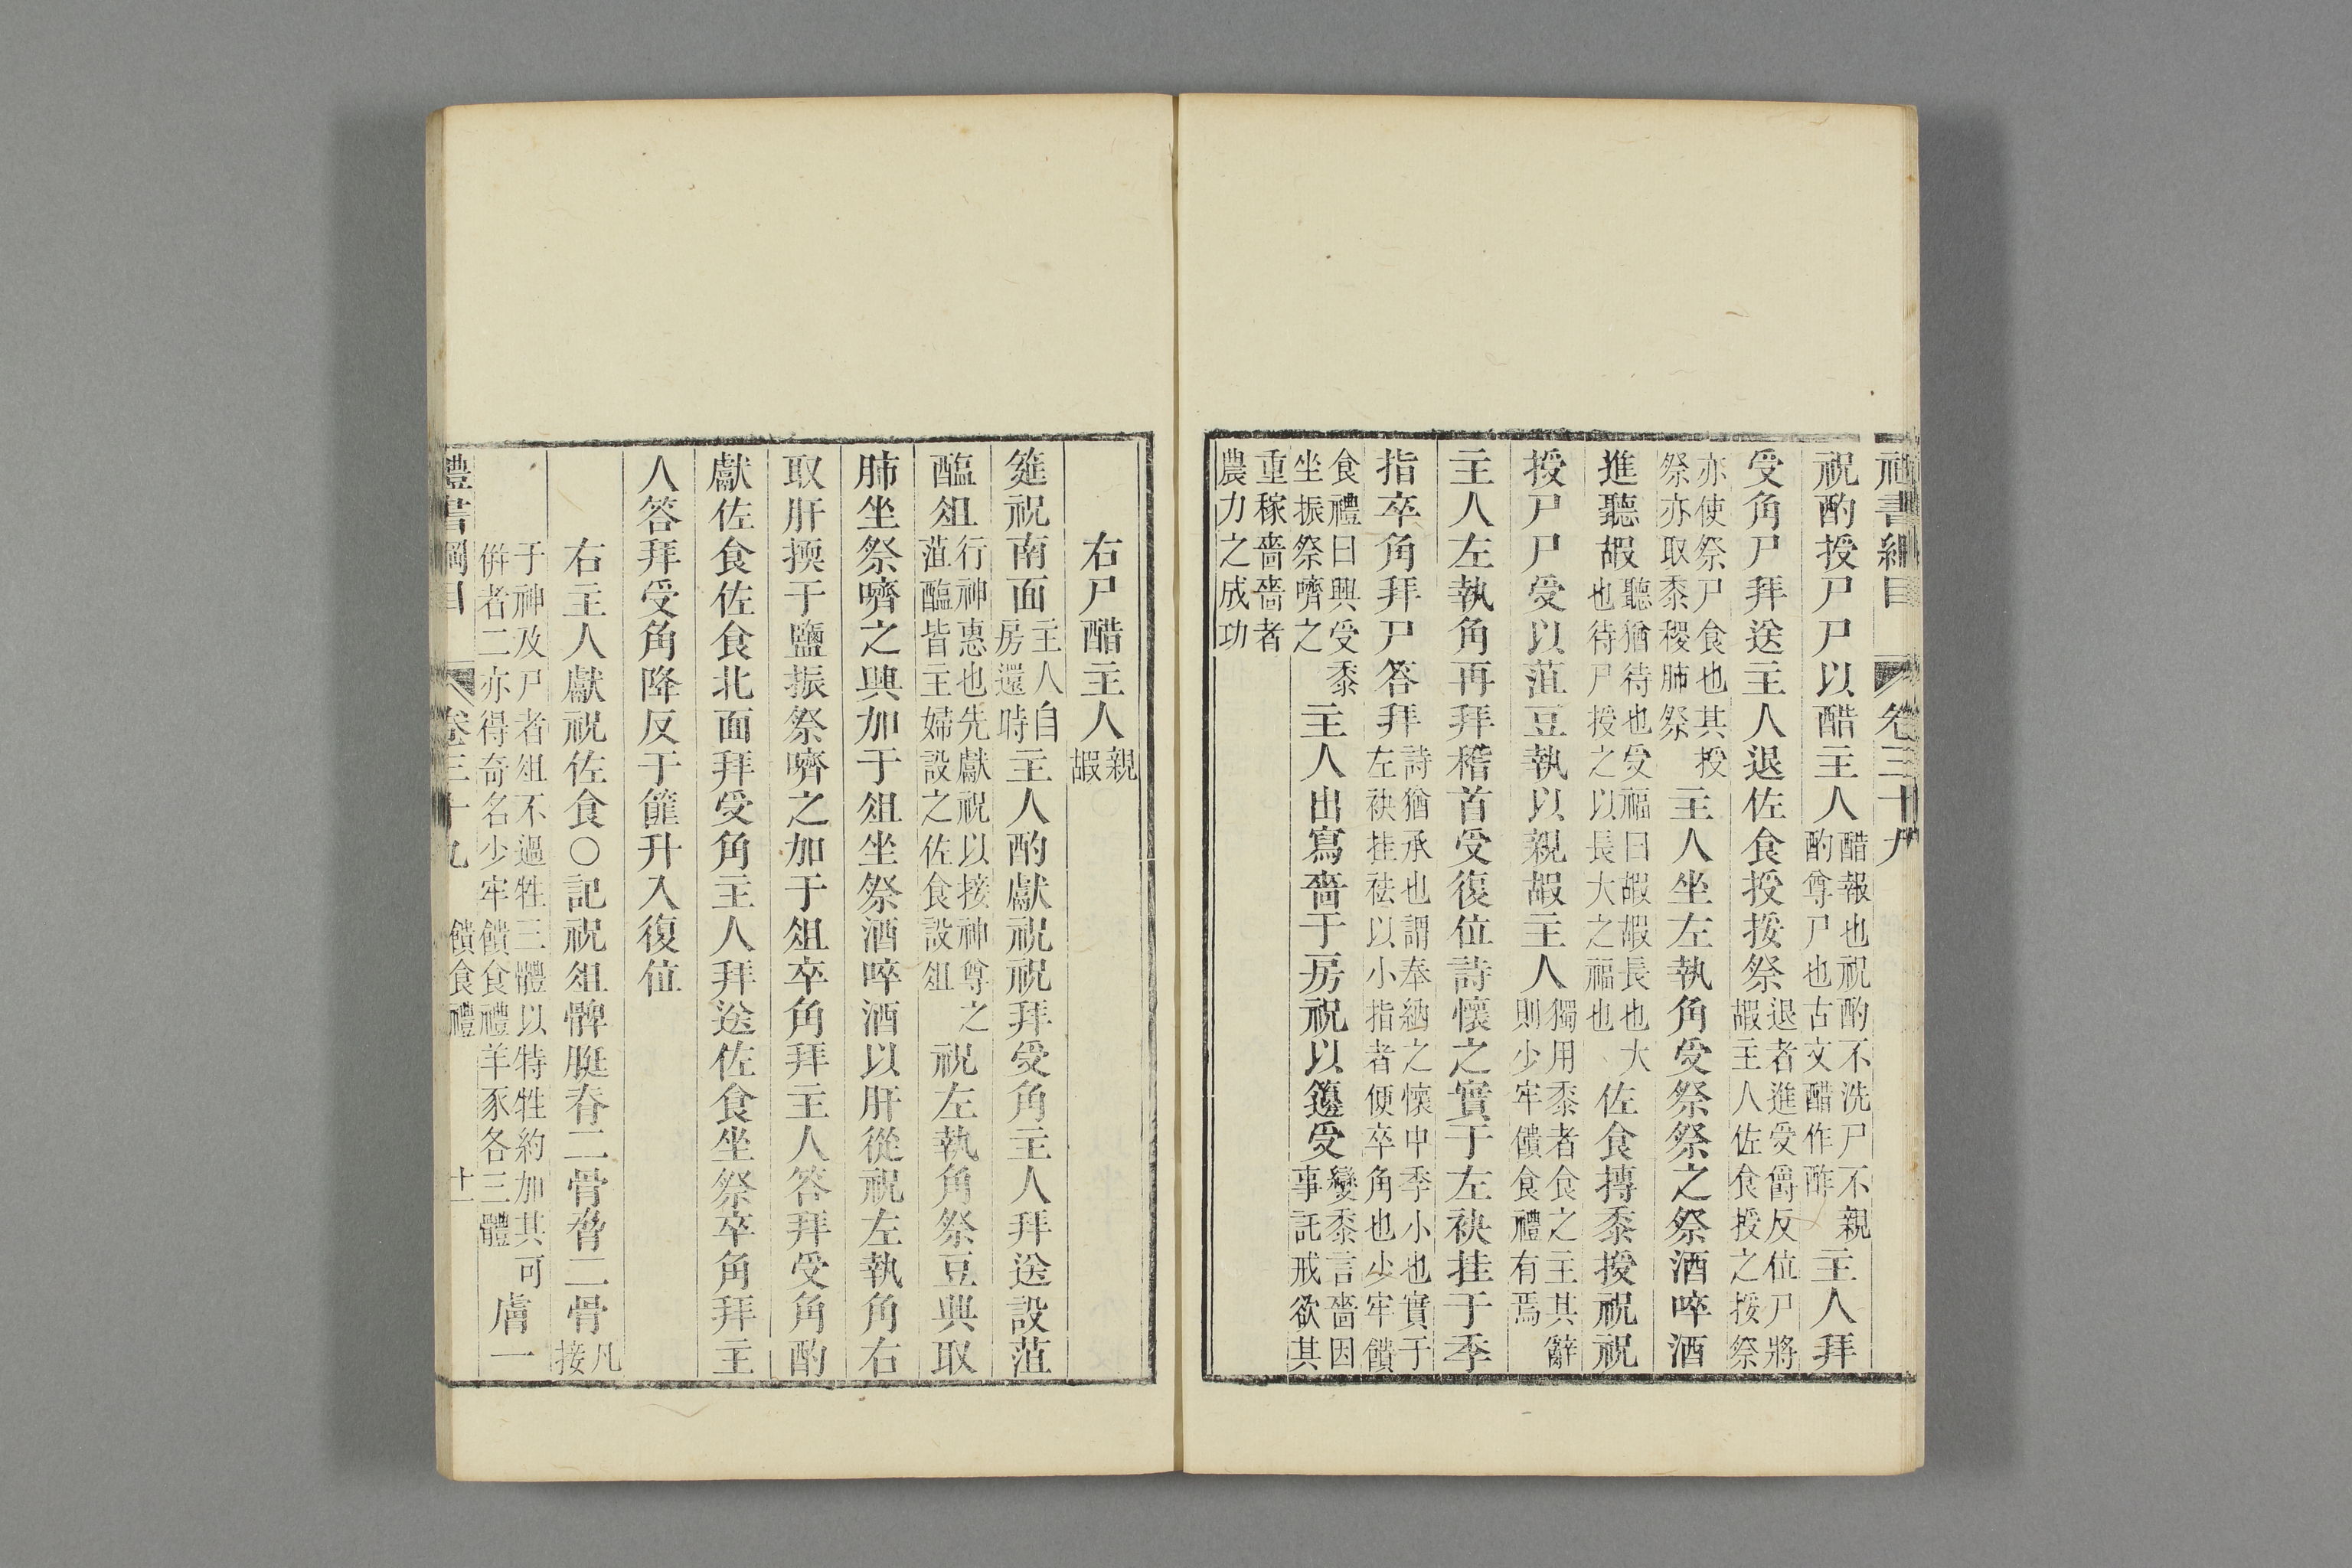 禮書綱目 卷三十九
祝酌授尸尸以醋主人醋報也祝酌不洗尸不親酌尊尸也古文醋作酢主人拜
受角尸拜送主人退佐食授挼祭退者進受爵反位尸將嘏主人佐食授之挼祭
亦使祭尸食也其授祭亦取黍稷肺祭主人坐左執角受祭祭之祭酒啐酒
進聽嘏聽猶待也受福曰嘏嘏長也大也待尸授之以長大之福也佐食摶黍授祝祝
授尸尸受以菹豆執以親嘏主人獨用黍者食之主其辭則少牢饋食禮有焉
主人左執角再拜稽首受復位詩懷之實于左袂挂于季
指卒角拜尸答拜詩猶承也謂奉納之懷中季小也實于左袂挂袪以小指者便卒角也少牢饋
食禮曰興受黍坐振祭嚌之主人出寫嗇于房祝以籩受變黍言嗇因事託戒欲其
重稼嗇嗇者農力之成功
右尸醋主人親嘏
筵祝南面主人自房還時主人酌獻祝祝拜受角主人拜送設菹
醢俎行神惠也先獻祝以接神尊之菹醢皆主婦設之佐食設俎祝左執角祭豆興取
肺坐祭嚌之興加于俎坐祭酒啐酒以肝從祝左執角右
取肝㨎于鹽振祭嚌之加于俎卒角拜主人答拜受角酌
獻佐食佐食北面拜受角主人拜送佐食坐祭卒角拜主
人答拜受角降反于篚升入復位
右主人獻祝佐食○記祝俎髀脡脊二骨脅二骨凡接
于神及尸者俎不過牲三體以特牲約加其可併者二亦得奇名少牢饋食禮羊豕各三體膚一
禮書綱目 卷三十九 饋食禮 十一